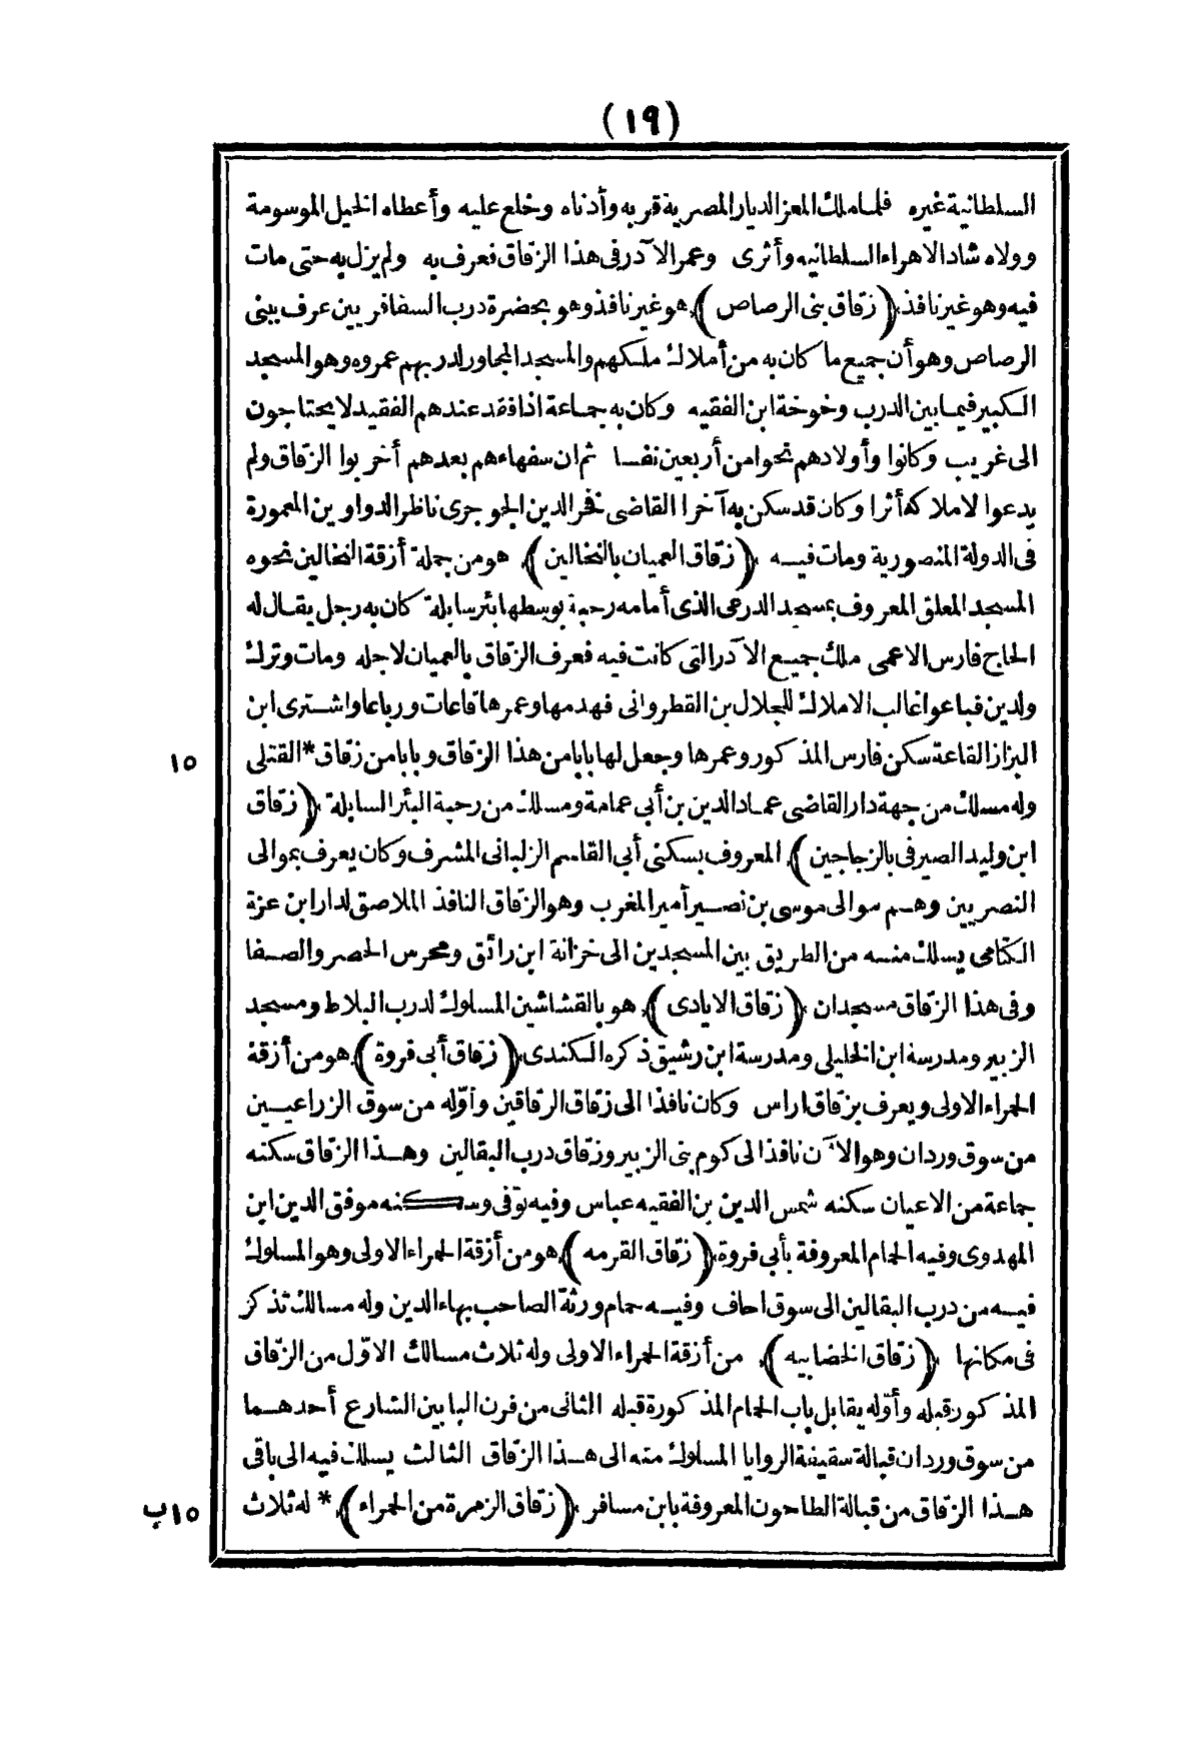 (١٩)
السلطانية غيره فلما ملك المعز الديار المصرية قربه وأدناه وخلع عليه وأعطاه الخيل الموسومة
وولاه شاد الاهراء السلطانيه وأثرى وعمر الآدر فى هذا الزقاق فعرف به ولم يزل به حتى مات
فيه وهو غير نافذ (زقاق بنى الرصاص) هو غير نافذ وهو بحضرة درب السفافريين عرف ببنى
الرصاص وهو أن جميع ما كان به من أملاك ملكهم والمسجد المجاور لدربهم عمروه وهو المسجد
الكبير فيما بين الدرب وخوخة ابن الفقيه وكان به جماعة اذا فقد عندهم الفقيد لا يحتاجون
الى غريب وكانوا وأولادهم نحوا من أربعين نفسا ثم ان سفهاءهم بعدهم أخربوا الزقاق ولم
يدعوا لاملاكه أثرا وكان قد سكن به آخرا القاضى فخر الدين الجوجرى ناظر الدواوين المعمورة
فى الدولة المنصورية ومات فيه (زقاق العميان بالنخالين) هو من جملة أزقة النخالين نحوه
المسجد المعلق المعروف بمسجد الدرعى الذى أمامه رحبة بوسطها بئر سابلة كان به رجل يقال له
الحاج فارس الاعمى ملك جميع الآدر التى كانت فيه فعرف الزقاق بالعميان لاجله ومات وترك
ولدين فباعوا غالب الاملاك للجلال بن القطروانى فهدمها وعمرها قاعات ورباعا واشترى ابن
البزاز القاعة سكن فارس المذكور وعمرها وجعل لها بابا من هذا الزقاق وبابا من زقاق * القتلى
١٥
وله مسلك من جهة دار القاضى عماد الدين بن أبى عمامة ومسلك من رحبة البئر السابلة (زقاق
ابن وليد الصيرفى بالزجاجين) المعروف بسكنى أبى القاسم الزلبانى المشرف وكان يعرف بموالى
النصريين وهم موالى موسى بن نصير أمير المغرب وهو الزقاق النافذ الملاصق لدار ابن عزة
الكتامى يسلك منه من الطريق بين المسجدين الى خزانة ابن رائق ومحرس الحصر والصفا
وفى هذا الزقاق مسجدان (زقاق الايادى) هو بالقشاشين المسلوك لدرب البلاط ومسجد
الزبير ومدرسة ابن الخليلى ومدرسة ابن رشيق ذكره الكندى (زقاق أبى فروة) هو من أزقة
الحمراء الاولى ويعرف بزقاق اراس وكان نافذا الى زقاق الرقاقين وأوّله من سوق الزراعيين
من سوق وردان وهو الآن نافذ الى كوم بنى الزبير وزقاق درب البقالين وهذا الزقاق سكنه
جماعة من الاعيان سكنه شمس الدين بن الفقيه عباس وفيه توفى وسكنه موفق الدين ابن
المهدوى وفيه الحمام المعروفة بأبى فروة (زقاق القرمه) هو من أزقة الحمراء الاولى وهو المسلوك
فيه من درب البقالين الى سوق احاف وفيه حمام ورثة الصاحب بهاء الدين وله مسالك تذكر
فى مكانها (زقاق الخضابيه) من أزقة الحمراء الاولى وله ثلاث مسالك الاوّل من الزقاق
المذكور قبله وأوله يقابل باب الحمام المذكورة قبله الثانى من فرن البابين الشارع أحدهما
من سوق وردان قبالة سقيفة الروايا المسلوك منه الى هذا الزقاق الثالث يسلك فيه الى باقى
هذا الزقاق من قبالة الطاحون المعروفة بابن مسافر (زقاق الزهرة من الحمراء) * له ثلاث
١٥ب